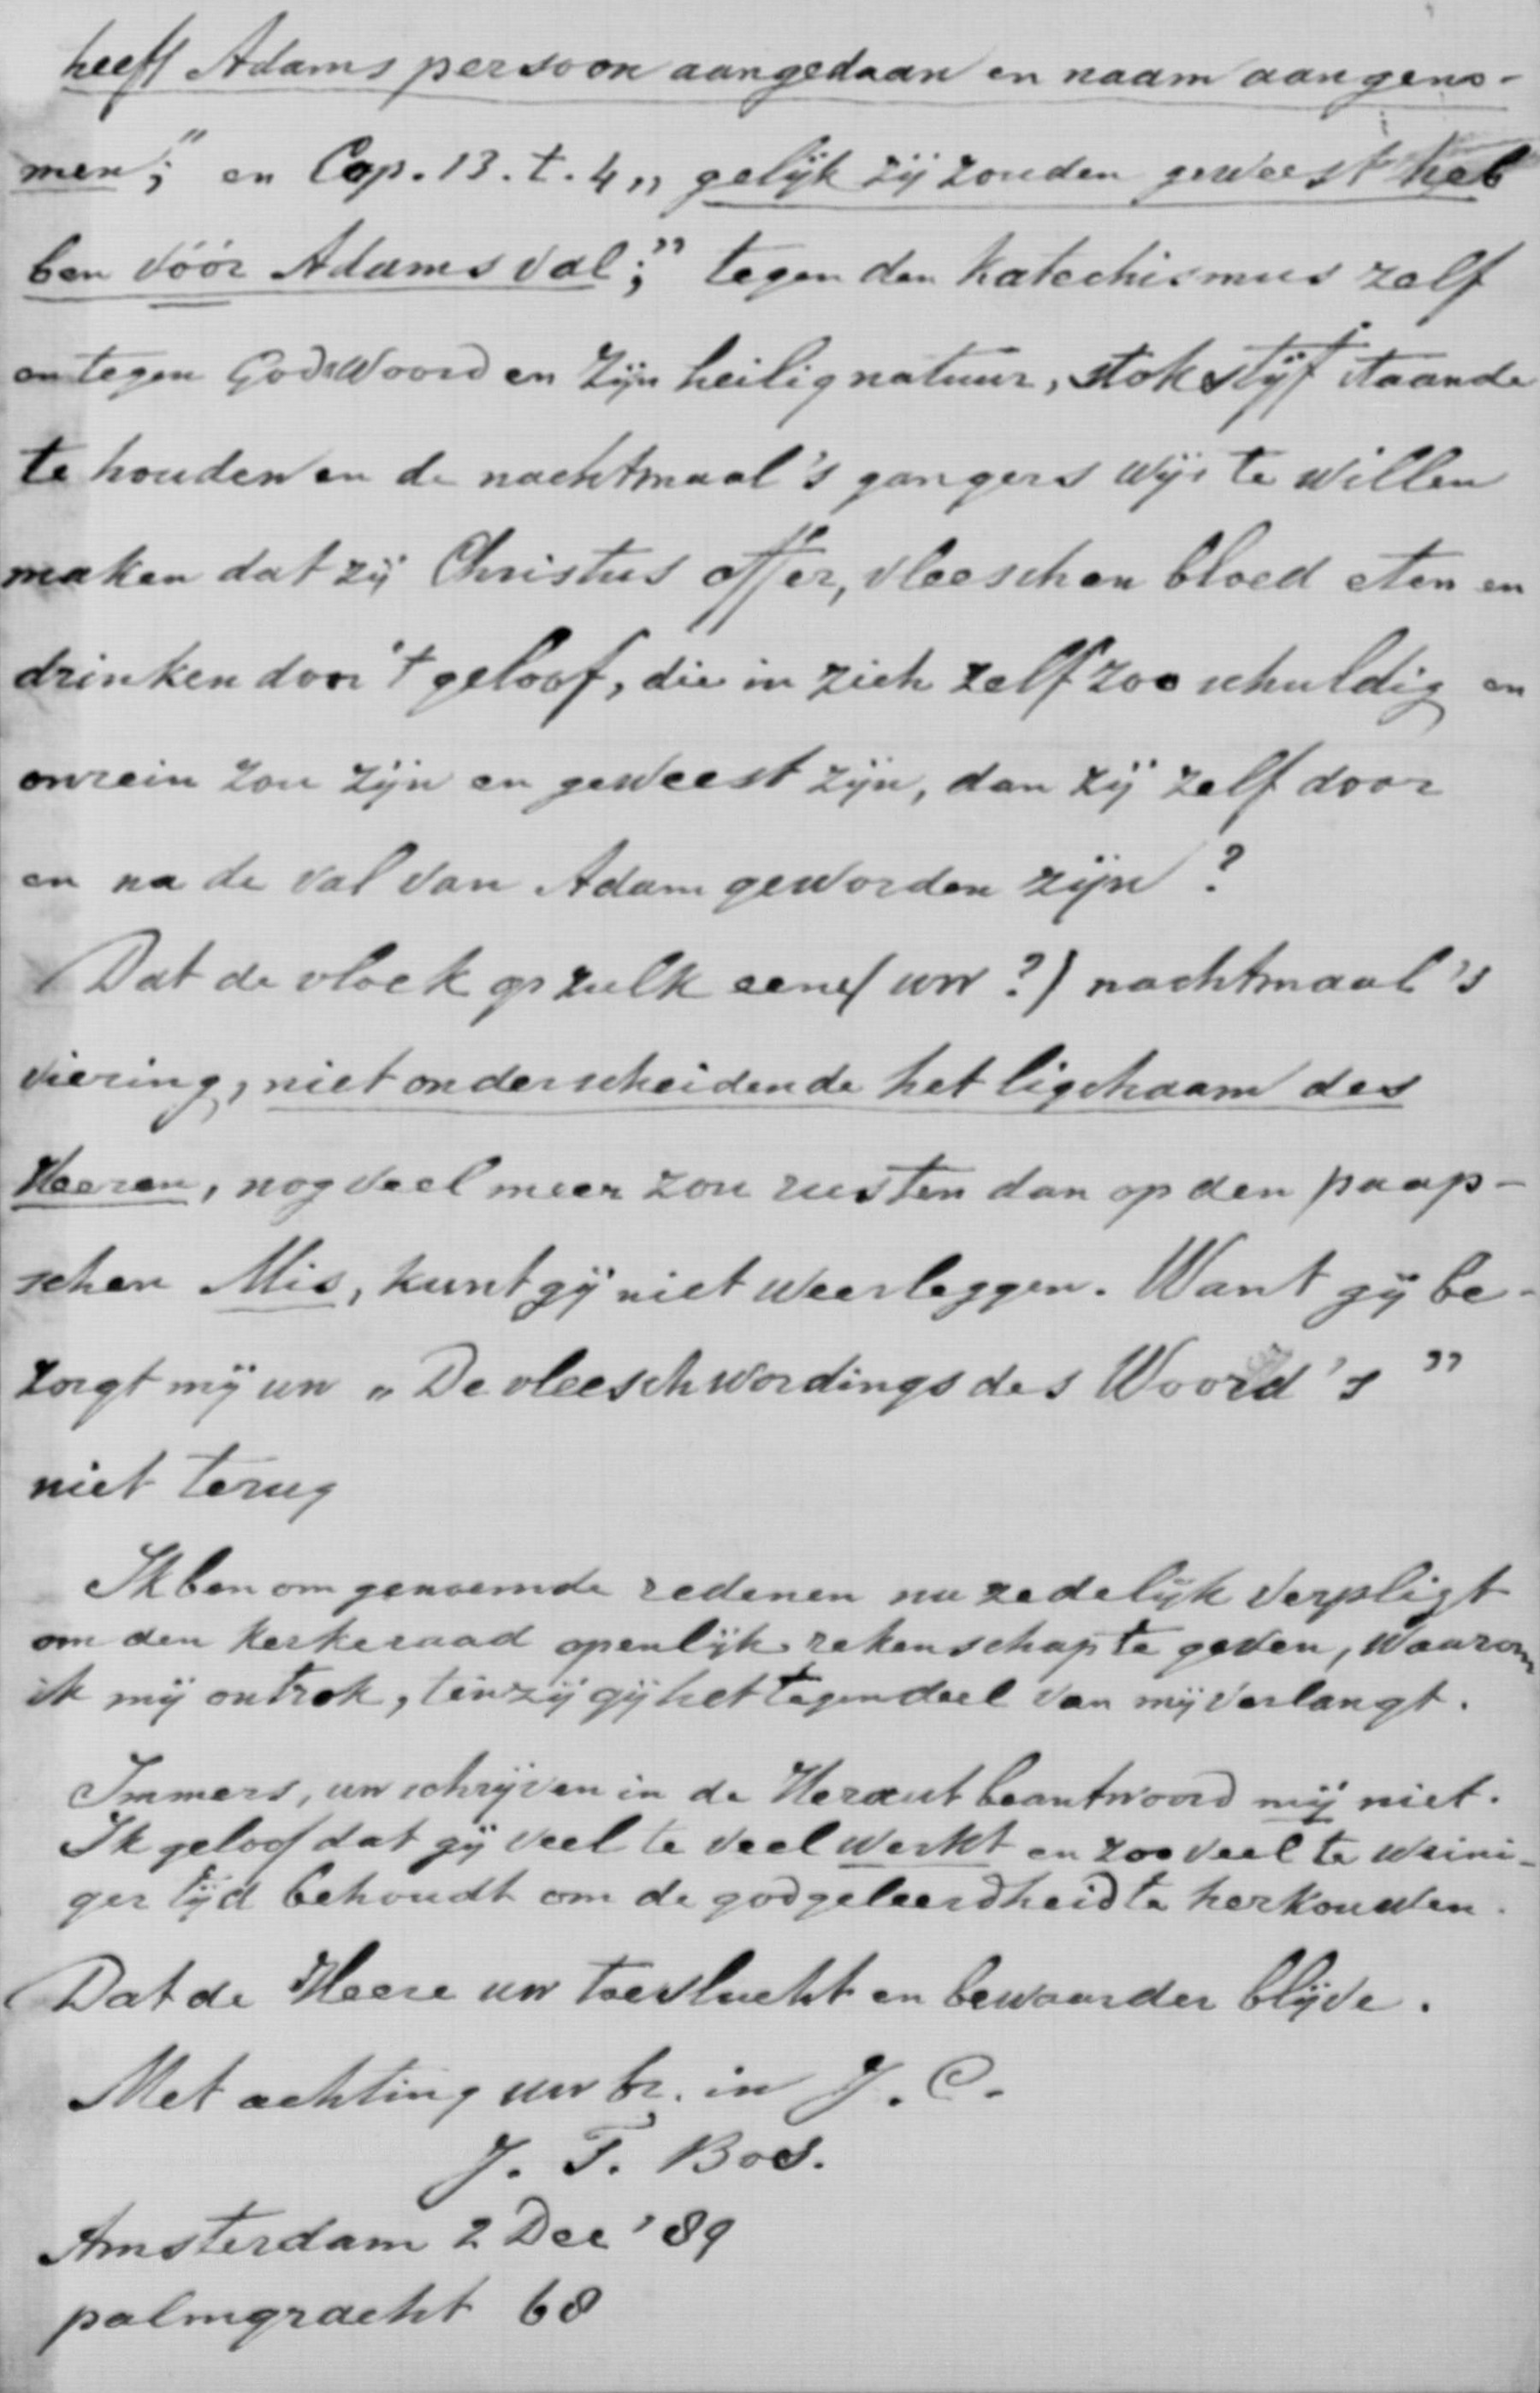 heeft Adams persoon aangedaan en naam aangeno-
men;" en Cap. 13. t. 4 „gelijk zij zouden geweest heb
ben vóór Adams val;" tegen den Katechismus zelf
en tegen Gods Woord en Zijn heilig natuur, stokstijf staande
te houden en de nachtmaal's gangers wijs te willen
maken dat zij Christus offer, vleesch en bloed eten en
drinken door 't geloof, die in zich zelf zoo schuldig en
onrein zou zijn en geweest zijn, dan zij zelf door
en na de val van Adam geworden zijn?
Dat de vloek op zulk eene (uw?) nachtmaal's
viering, niet onderscheidende het ligchaam des
Heeren, nog veel meer zou rusten dan op den paap-
schen Mis, kunt gij niet weerleggen. Want gij be-
zorgt mij uw „De vleeschwordings des Woord's"
niet terug
Ik ben om genoemde redenen nu zedelijk verpligt
om den kerkeraad openlijk rekenschap te geven, waarom
ik mij ontrok, tenzij gij het tegendeel van mij verlangt.
Immers, uw schrijven in de Heraut beantwoord mij niet.
Ik geloof dat gij veel te veel werkt en zoo veel te weini-
ger tijd behoudt om de godgeleerdheid te herkouwen.
Dat de Heere uw toevlucht en bewaarder blijve.
Met achting uw br. in J. C.
J. T. Bos.
Amsterdam 2 Dec '89
palmgracht 68